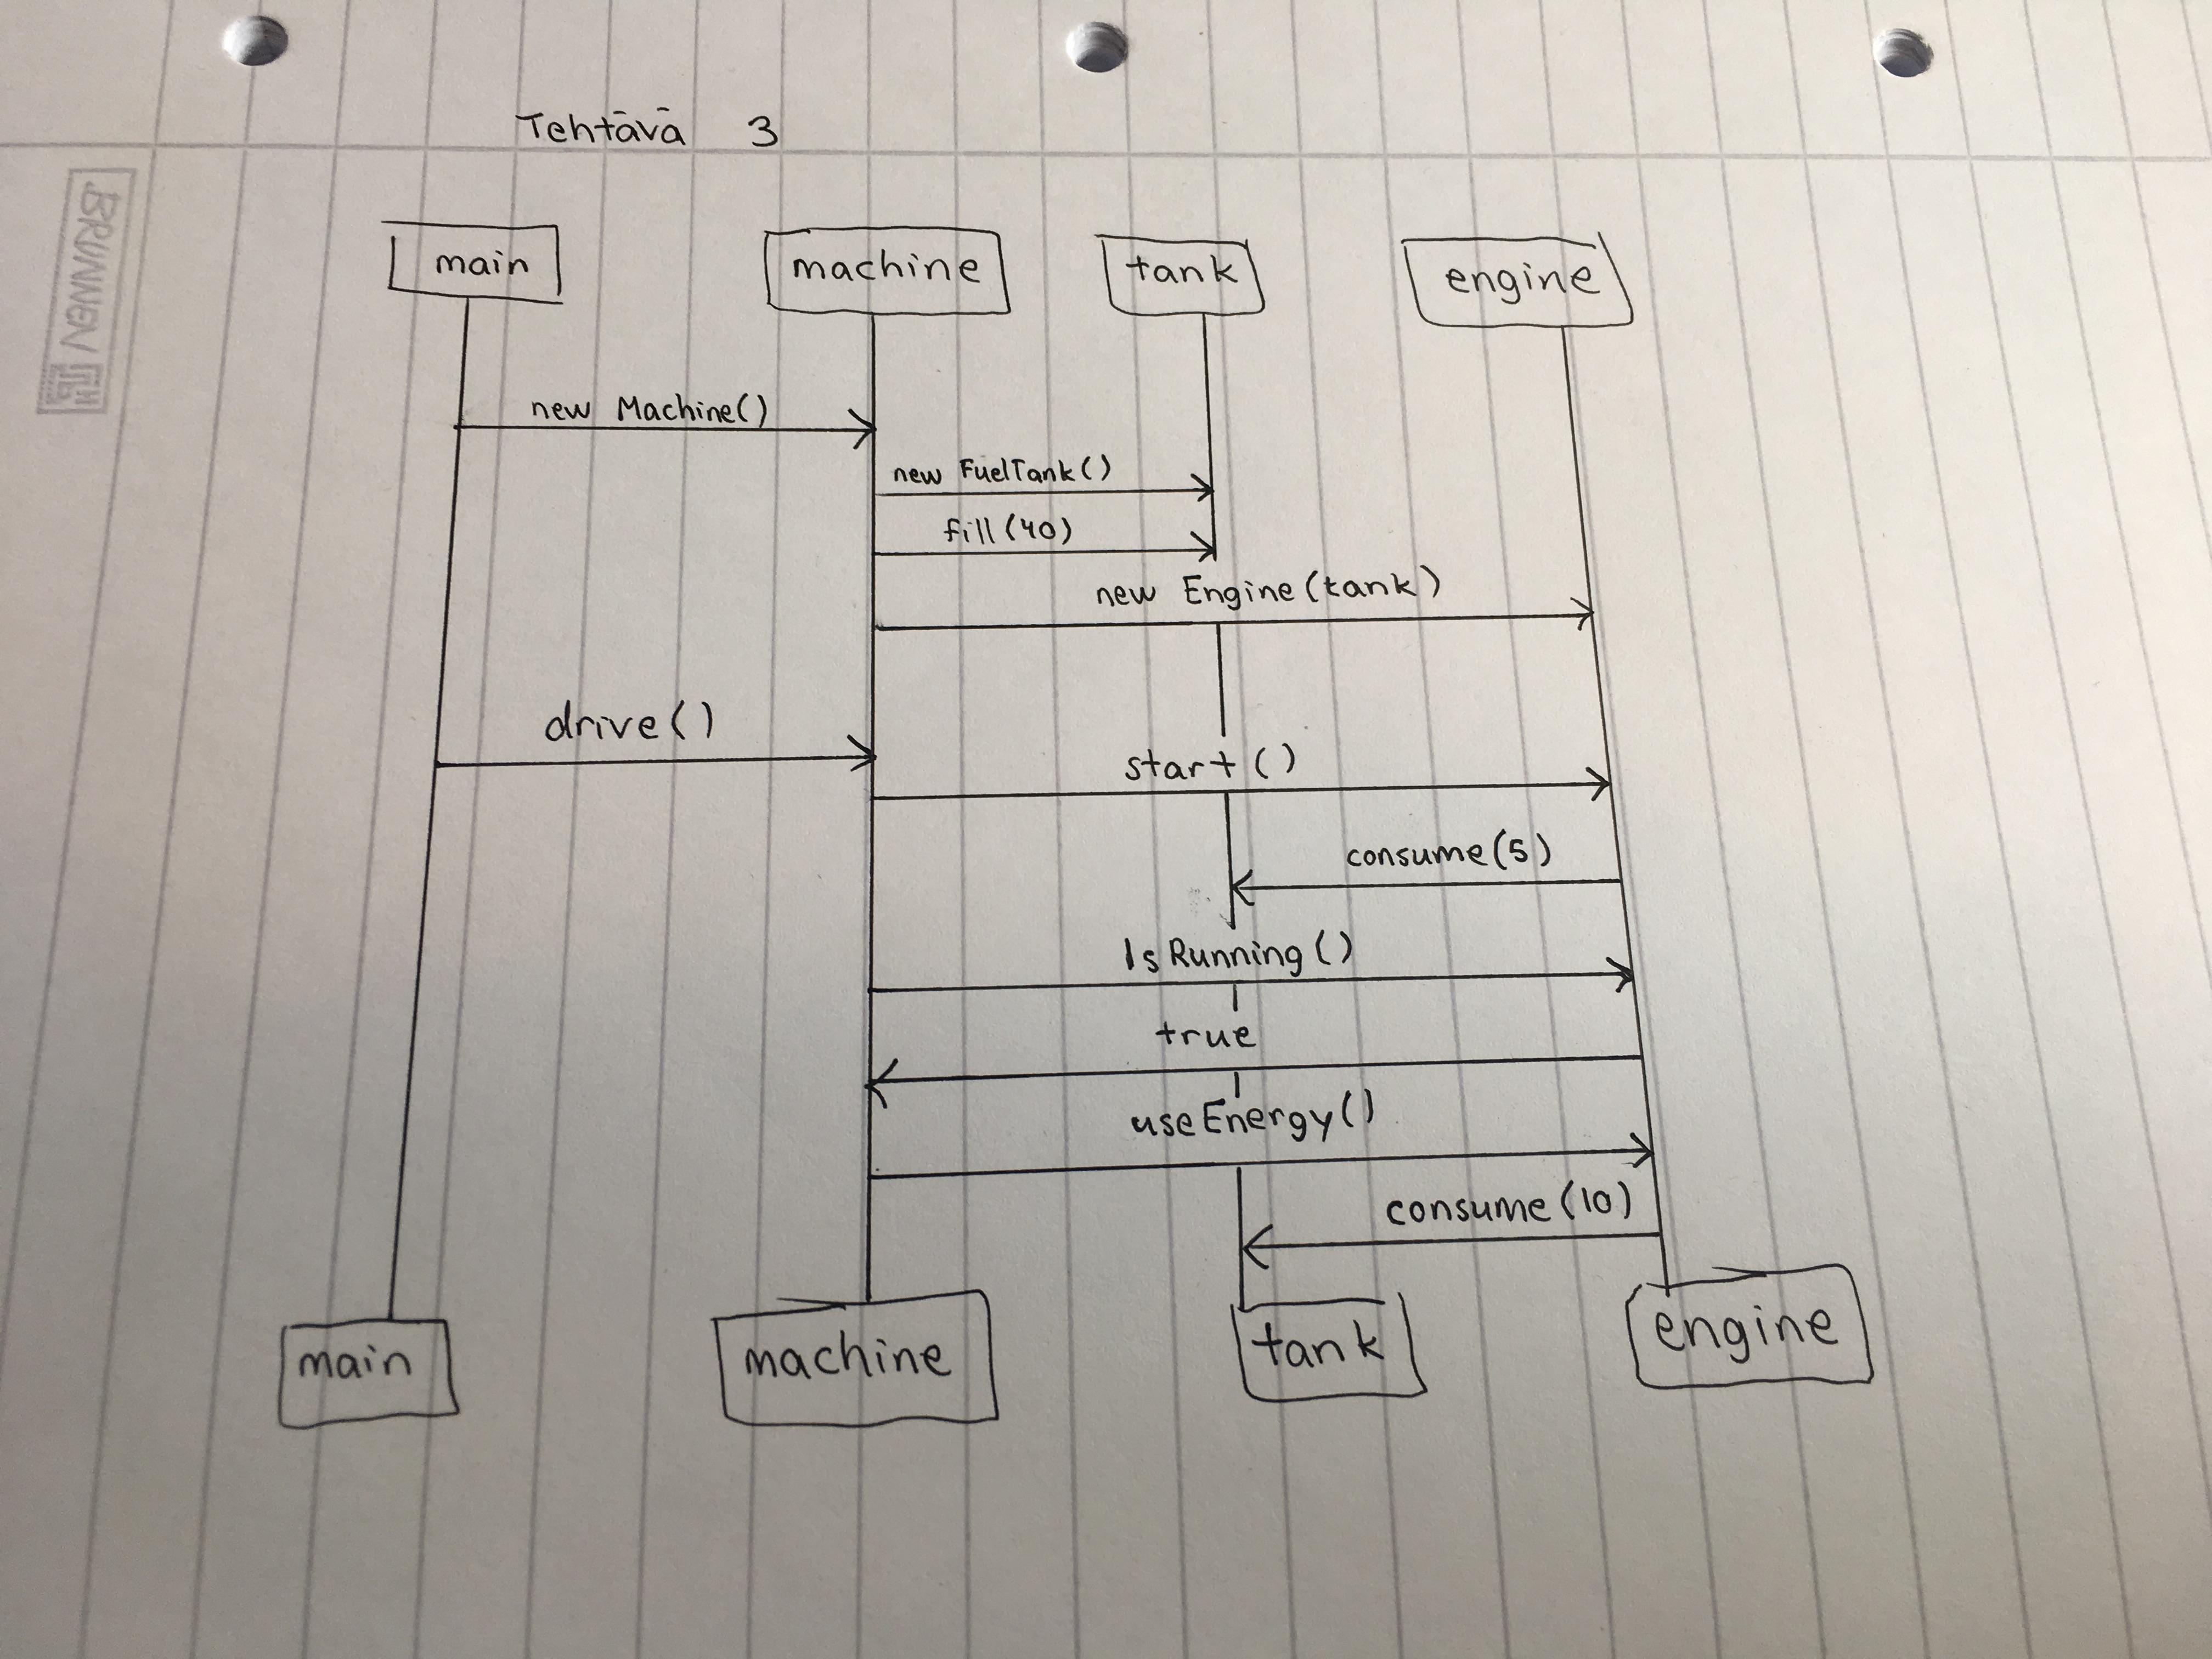 Tehtävä 3
BRUNNEN
main machine tank engine
new Machine()
new FuelTank()
fill(40)
new Engine(tank)
drive()
start()
consume(5)
IsRunning()
true
useEnergy()
consume(10)
main machine tank engine